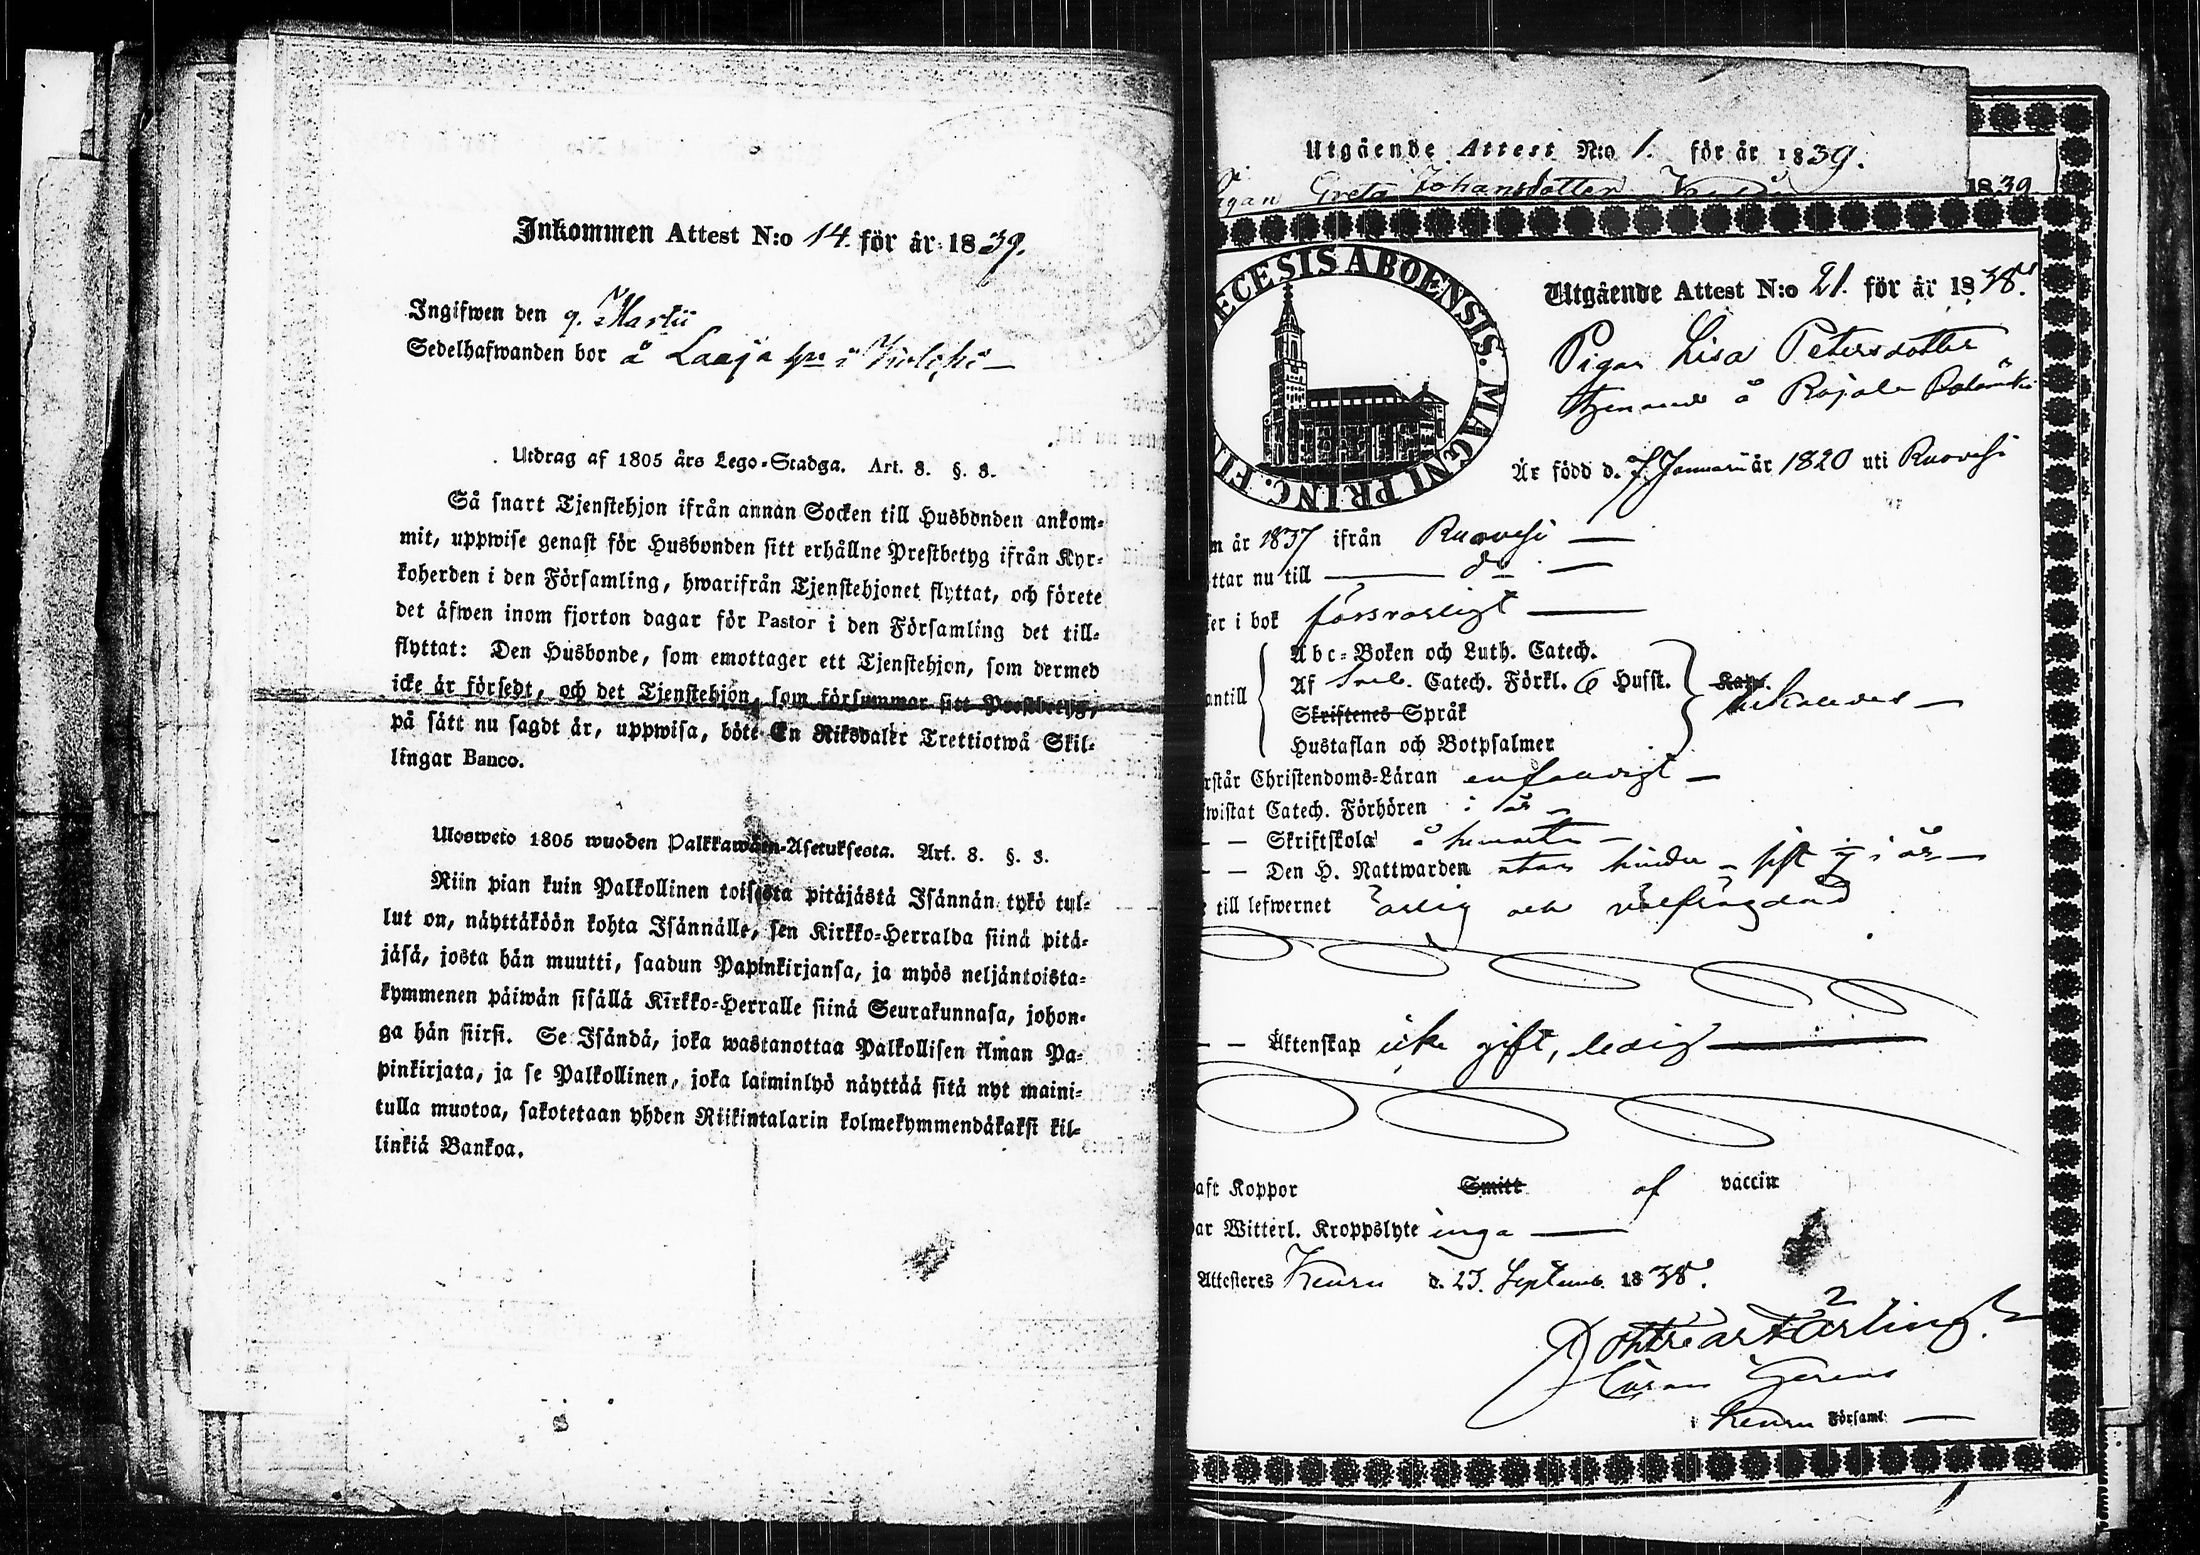 Inkommen Attest N:o 14. för år 1839.
Ingifwen den 9. Martii
Sedelhafwanden bor å Laaja i
Utdrag af 1805 års Lego-Stadga. Art. 8. §. 8.
Så snart Tjenstehjon ifrån annan Socken till Husbonden ankom-
mit, uppwise genast för Husbonden sitt erhållne Prestbetyg ifrån Kyr-
koherden i den Församling, hwarifrån Tjenstehjonet flyttat, och förete
det äfwen inom fjorton dagar för Pastor i den Församling det till-
flyttat: Den Husbonde, som emottager ett Tjenstehjon, som dermed
icke är försedt, och det Tjenstehjon, som försummar sitt Prestbetyg,
på sätt nu sagdt är, uppwisa, böte En Riksdaler Trettiotwå Skil-
lingar Banco.
Ulosweto 1805 wuoden Palkkawäen-Asetuksesta. Art. 8. §. 8.
Niin pian kuin Palkollinen toisesta pitäjästä Isännän tykö tul-
lut on, näyttäköön kohta Isännälle, sen Kirkko-Herralda siinä pitä-
jäsä, josta hän muutti, saadun Papinkirjansa, ja myös neljäntoista-
kymmenen päiwän sisällä Kirkko-Herralle siinä Seurakunnasa, johon-
ga hän siirsi. Se Isändä, joka wastanottaa Palkollisen ilman Pa-
pinkirjata, ja se Palkollinen, joka laiminlyö näyttää sitä nyt maini-
tulla muotoa, sakotetaan yhden Riikintalarin kolmekymmendäkaksi kil-
linkiä Bankoa.
Utgående Attest N:o 1. för år 1839.
igan Greta Johansdotter
1839
ECESIS ABOENSIS. MAGNI PRINC. FI
Utgående Attest N:o 21. för år 1838.
Pigan Lisa Petersdotter
tjenande å Rajala
Är född d. 7 Januarii år 1820 uti Ruovesi
n år 1837 ifrån Ruovesi —
ttar nu till — do —
er i bok försvarligt —
antill
Abc-Boken och Luth. Catech.
Af Sveb. Catech. Förkl. 6 Hufst.
Skriftenes Språk
Hustaflan och Botpsalmer
rstår Christendoms-Läran enfaldigt —
wistat Catech. Förhören i år —
— — Skriftskola
— — Den H. Nattwarden utan hinder — sist i år —
till lefwernet ärlig och välfrägdad
— — Äktenskap icke gift, ledig —
aft Koppor Smitt af vaccin
ar Witterl. Kroppslyte inga —
Attesteres Keuru d. 23. Septemb. 1838.
i Keuru Församl: —